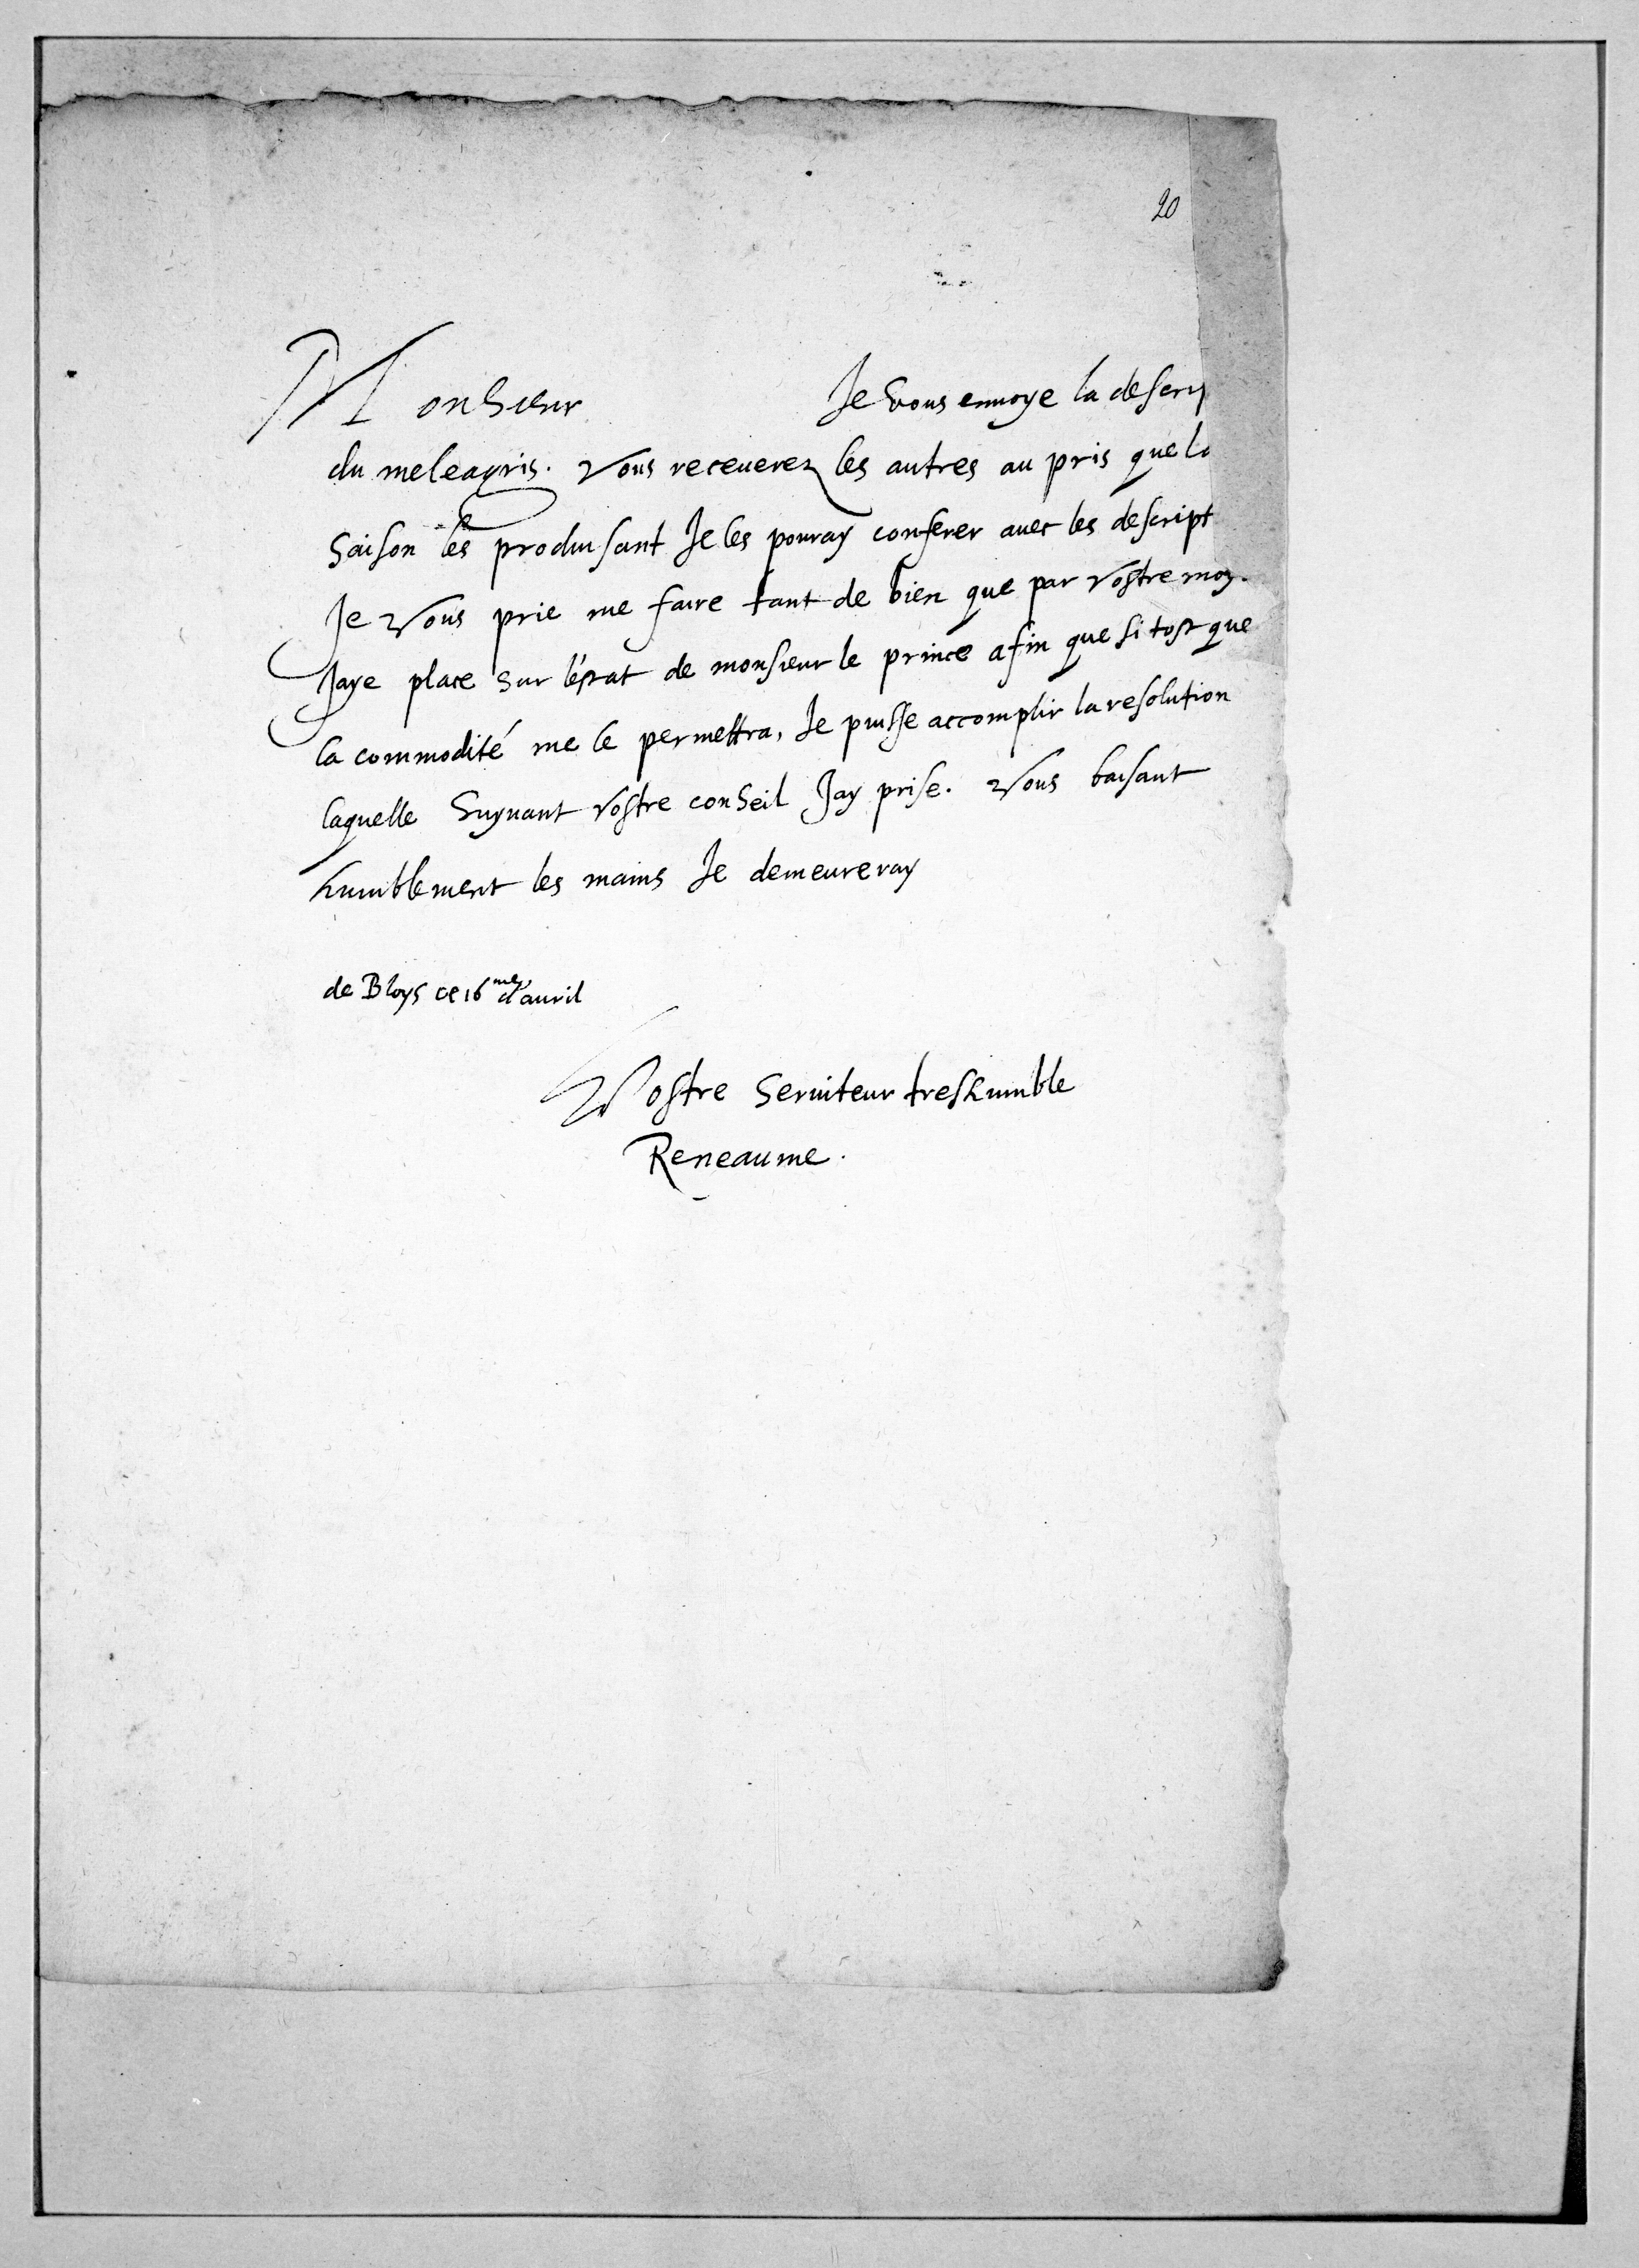 20
Monsieur Je vous envoye la descri
du meleagris. Vous receuerez les autres au pris que la
saison les produisant Je les pouray conferer auec les descript
Je vous prie me faire tant de bien que par vostre moy
Jaye place sur l'estat de monsieur le prince afin que si tost que
la commodité me le permettra, Je puisse accomplir la resolution
laquelle suyuant vostre conseil Jay prise. Vous baisant
humblement les mains Je demeureray
de Bloys ce 16me d'auril
Vostre seruiteur treshumble
Reneaume.